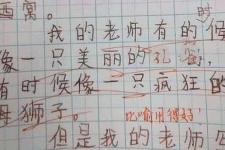 西窝。
时
我的老师有的候
像一只美丽的孔雀,
有时候像一只疯狂的
母狮子。比喻用得好!
但是我的老师